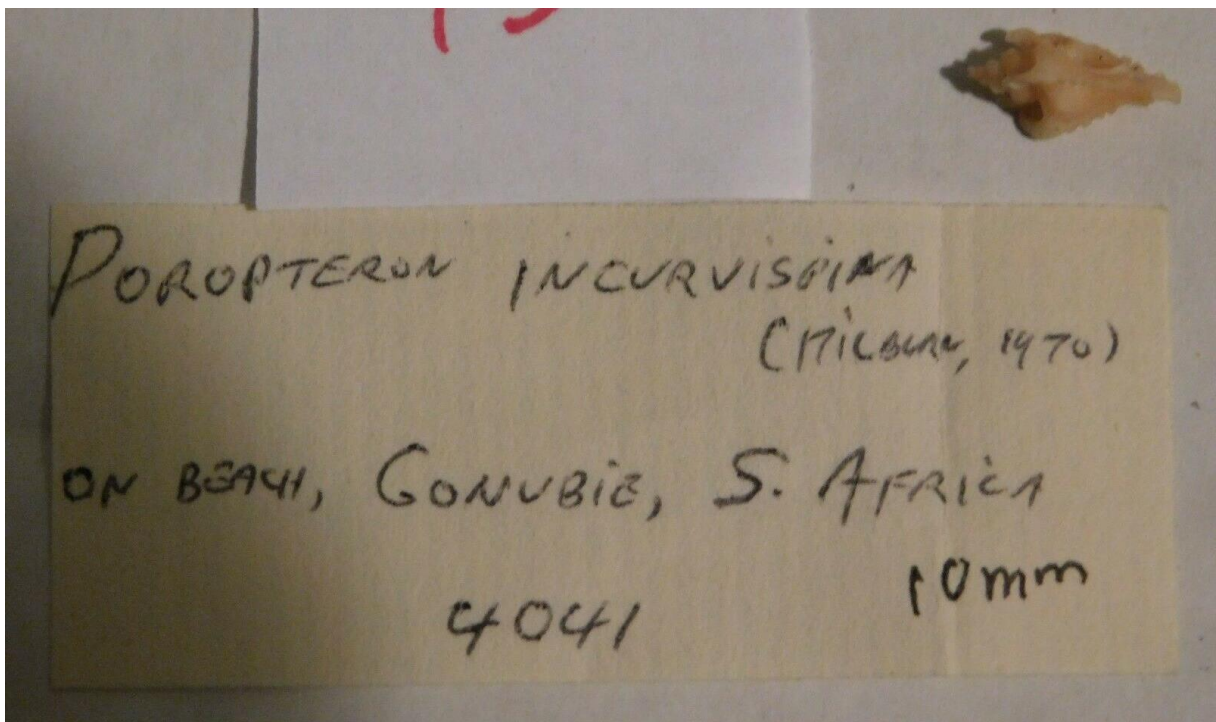 POROPTERON INCURVISPINA
(KILBURN, 1970)
ON BEACH, GONUBIE, S. AFRICA
10mm
4041